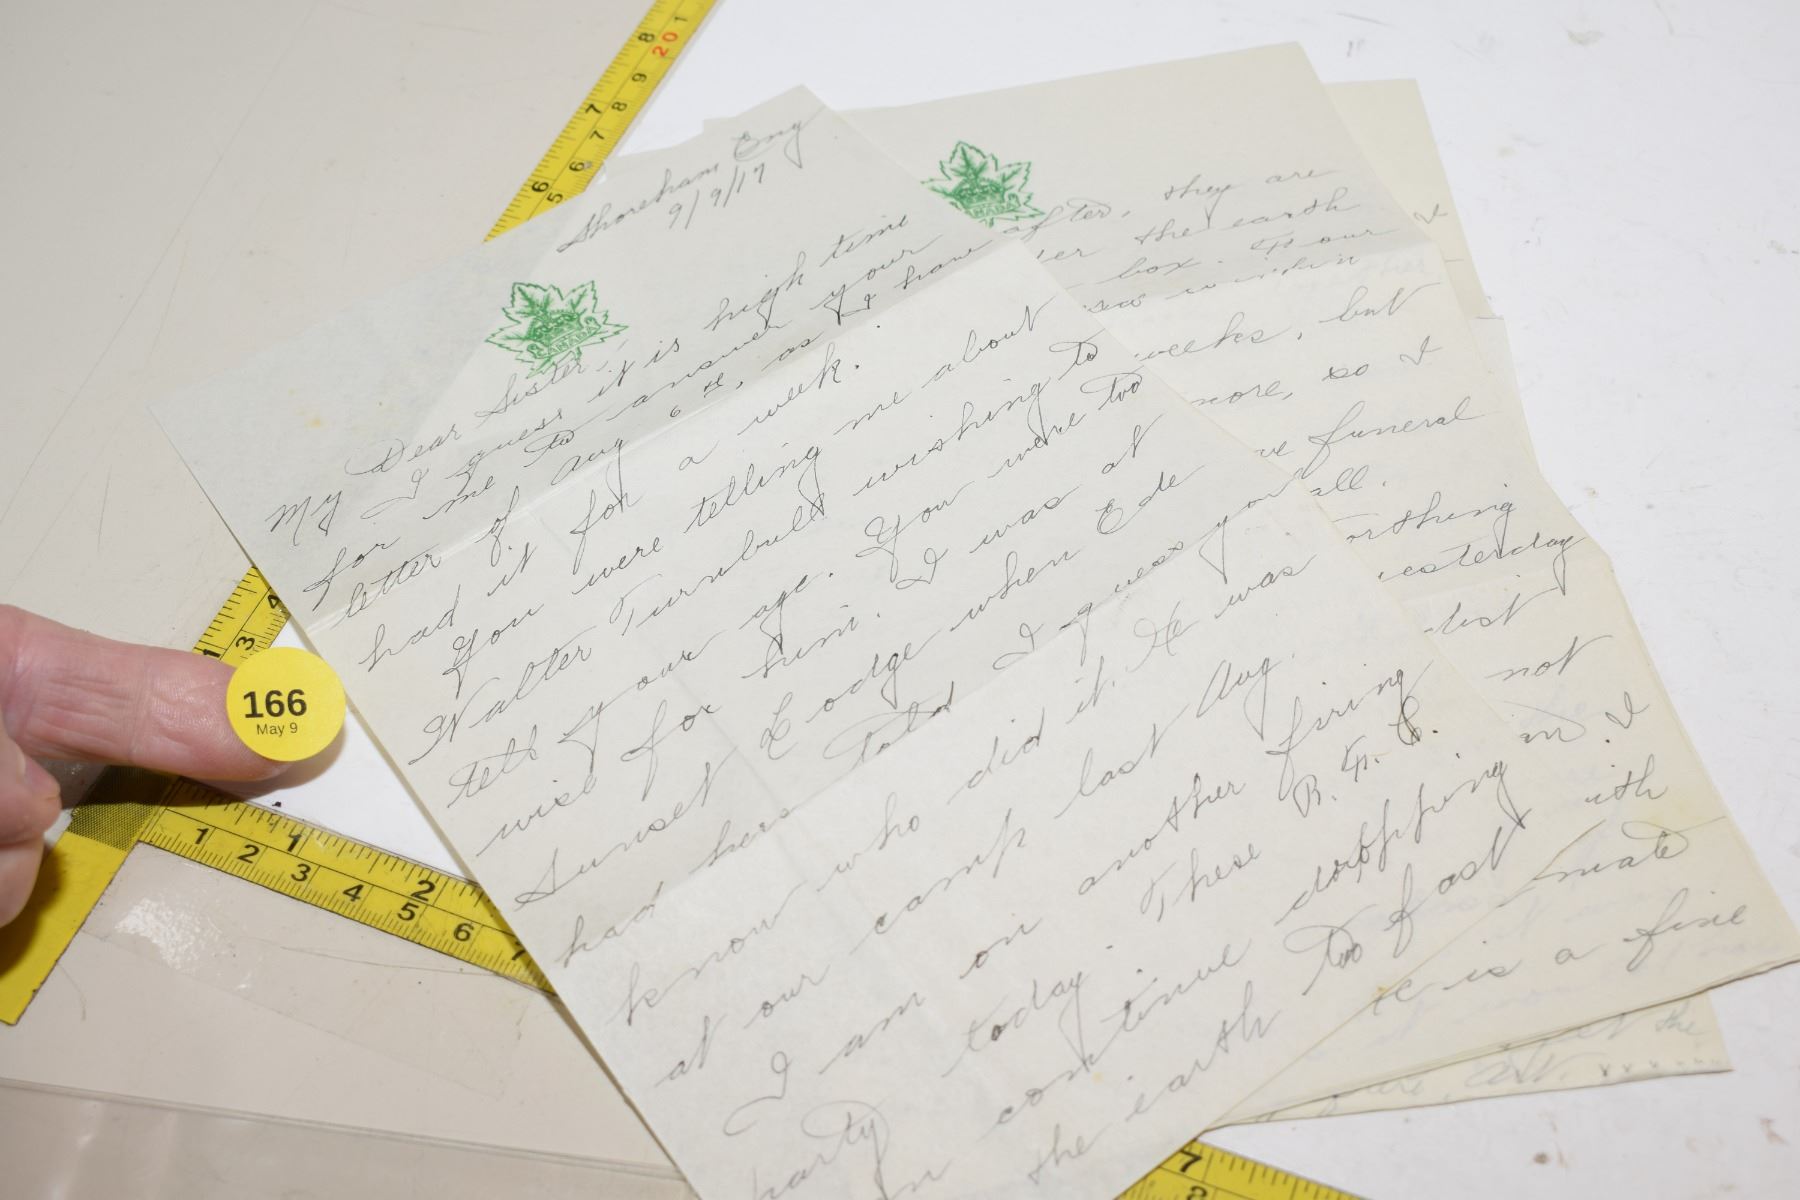 Shoreham Eng
9/9/17
CANADA
My Dear Sister,
I guess it is high time
for me to answer your
letter of Aug 6th, as I have
had it for a week.
You were telling me about
Walter Turnbull wishing to
tell your age. You were too
wise for him. I was at
Sunset Lodge when Ede
had hers told I guess you
know who did it. He was
at our camp last Aug.
I am on another firing
party today. These R.F.C.
continue dropping
the earth too fast
CANADA
after, they are
the earth
box. F our
within
weeks, but
more, so I
funeral
all.
yesterday
list
not
in. I
mate
is a fine
the
I
166
May 9
1 2 3 4 5 6 7
1 2
3 4
5 6 7 8 9 20 1
6 7 8
7